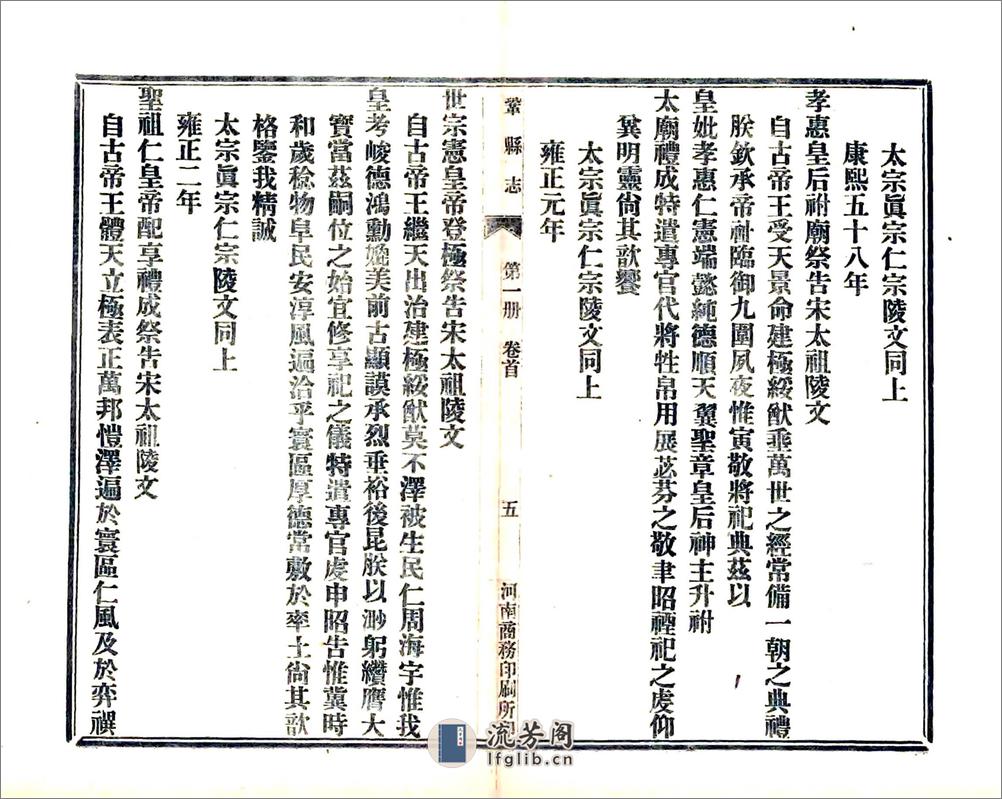 太宗眞宗仁宗陵文同上
康熙五十八年
孝惠皇后祔廟祭告宋太祖陵文
自古帝王受天景命建極綏猷垂萬世之經常備一朝之典禮
朕欽承帝祉臨御九圍夙夜惟寅敬將祀典茲以
皇妣孝惠仁憲端懿純德順天翼聖章皇后神主升祔
太廟禮成特遣專官代將牲帛用展苾芬之敬聿昭禋祀之虔仰
冀明靈尙其歆饗
太宗眞宗仁宗陵文同上
雍正元年
鞏縣志 第一册 卷首 五 河南商務印刷所
世宗憲皇帝登極祭告宋太祖陵文
自古帝王繼天出治建極綏猷莫不澤被生民仁周海宇惟我
皇考峻德鴻勳媲美前古顯謨承烈垂裕後昆朕以渺躬纘膺大
寶當茲嗣位之始宜修享祀之儀特遣專官虔申昭告惟冀時
和歲稔物阜民安淳風遍洽乎寰區厚德常敷於率土尙其歆
格鑒我精誠
太宗眞宗仁宗陵文同上
雍正二年
聖祖仁皇帝配享禮成祭告宋太祖陵文
自古帝王體天立極表正萬邦愷澤遍於寰區仁風及於弈禩
流芳阁
lfglib.cn